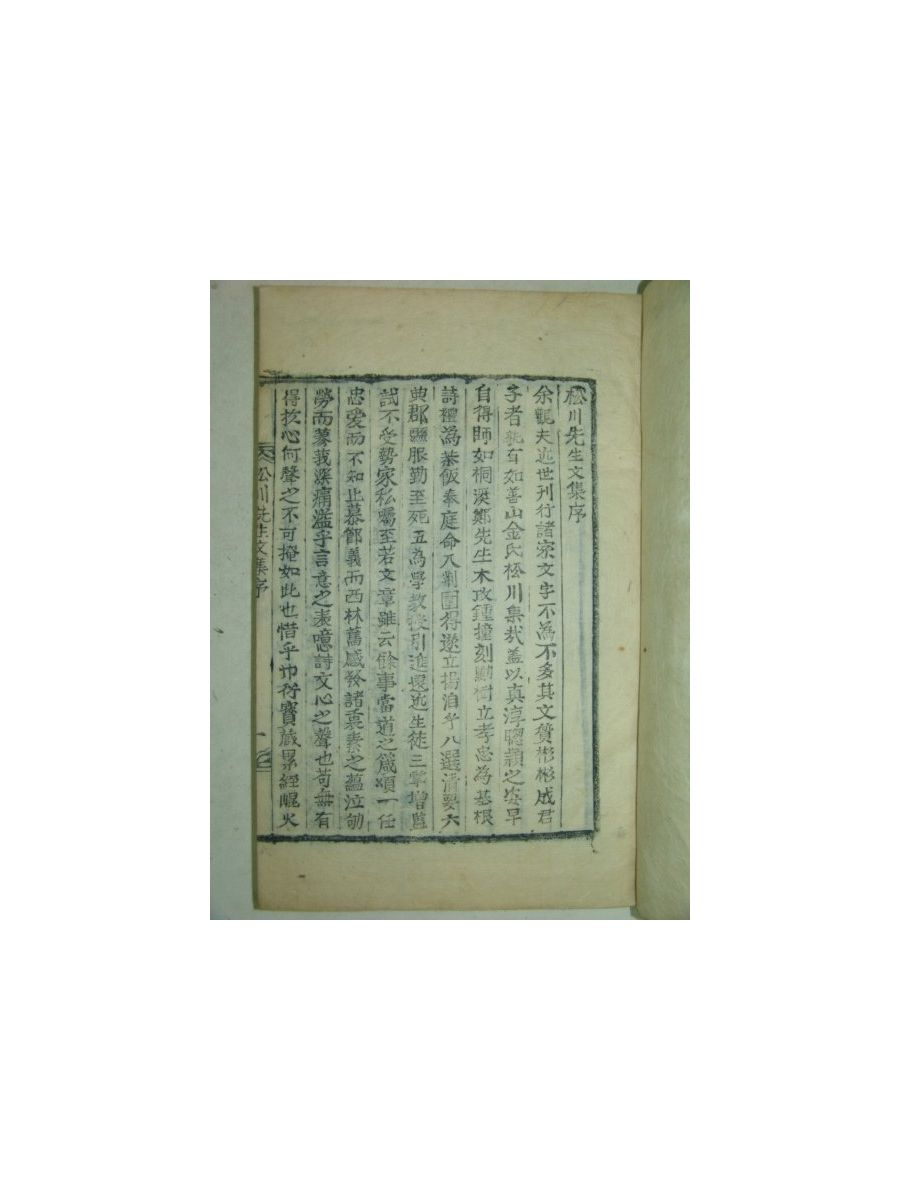 松川先生文集序
余觀夫近世刊行諸家文字不爲不多其文質彬彬成君
子者孰有如善山金氏松川集哉盖以真淳聰穎之姿早
自得師如桐溪鄭先生木攻鍾撞刻勵樹立孝忠為基根
詩禮為茶飯奉庭命入荆圍得遂立揚洎乎八選清要六
典郡縣服勤至死五為學教授引進遠近生徒三掌增監
試不受勢家私囑至若文章雖云餘事當道之箴頌一任
忠愛而不知止慕節義而西林舊感發諸裏素之蘊泣劬
勞而蓼莪深痛溢乎言意之表噫詩文心之聲也苟無有
得於心何聲之不可掩如此也惜乎巾衍寶藏累經鬽火
松川先生文集序 一